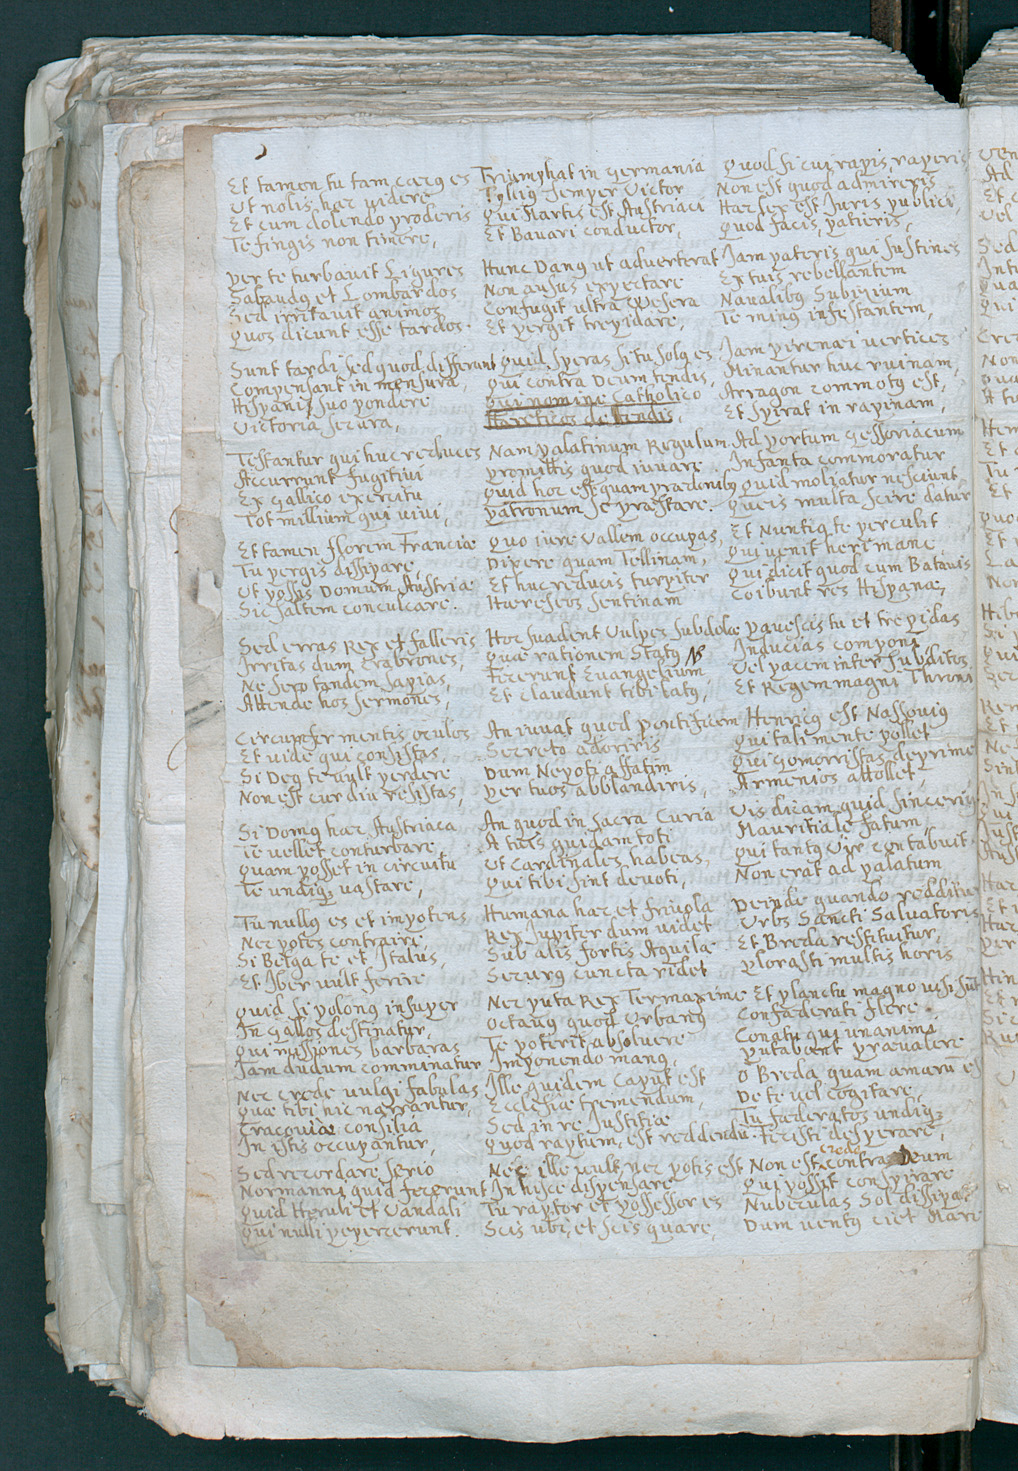 Et tamen tu tam cæcus es
Ut nolis hec videre
Et cum dolendo proderis
Te fingis non timere,
Per te turbavit Ligures
Sabaudus et Lombardos
Sed irritavit animos
Quos dicunt esse tardos.
Sunt tardi sed quod differunt
Compensant in mensura,
Hispanis suo pondere
Victoria secura,
Testantur qui huc reduces
Accurrunt fugitivi
Ex Gallico exercitu
Tot millium qui vivi,
Et tamen florem Franciæ
Tu pergis dissipare
Ut possis Domum Austriæ
Sic saltem conculcare.
Sed erras Rex et falleris
Irritas dum Crabrones,
Ne sero tandem sapias
Attende hos sermones,
Circumfer mentis oculos
Et vide qui consistas,
Si Deus te vult perdere
Non est cur diu resistas,
Si Domus hæc Austriaca
Te vellet conturbare
Quam posset in circuitu
Te undiq; vastare,
Tu nullus es et impotens
Nec potes contraire,
Si Belga te et Italus
Et Iber vult ferire
Quid si Polonus insuper
In Gallos destinatur,
Qui missiones barbaras
Jam dudum comminatur
Nec crede vulgi fabulas
Quæ tibi hic narrantur,
Cracoviæ consilia
In istis occupantur,
Sed recordare serio
Normanni quid fecerunt
Quid Heruli et Vandali
Qui nulli pepercerunt.
Triumphat in Germania
Tyllius semper Victor
Qui Martis est Austriaci
Et Bavari conductor,
Hunc Danus ut adverterat
Non ausus expectare
Confugit ultra Wesera
Et pergit trepidare,
Quid speras si tu solus es
Qui contra Deum tendis,
Qui nomine Catholico
Hæreticos defendis,
Nam Palatinum Regulum
Promittis quod iuvare
Quid hoc est quam prædonibus
Patronum se præstare.
Quo iure Vallem occupas,
Dixere quam Tellinam,
Et huc reducis turpiter
Hæreseos sentinam
Hoc suadent Vulpes subdolæ
Quæ rationem Status
Fecerunt Evangelium,
Et claudunt tibi latus,
An iuvat quod Pontificem
Secreto adoriris
Dum Nepoti affatim
Per tuos abblandiris,
An quod in sacra Curia
A tuis quidam toti
Ut Cardinales habeas,
Qui tibi sint devoti,
Humana hæc et frivola
Rex Jupiter dum videt
Sub alis fortis Aquila
Securus cuncta ridet
Nec puta Rex Termaxime
Octavus quod Urbanus
Te poterit absolvere
Imponendo manus,
Ille quidem Caput est
Ecclesiæ tremendum,
Sed in re Justitiæ
Quod raptum, est reddendū.
Nec ille vult nec potis est
In hisce dispensare
Tu raptor et possessor es
Scis ubi, et scis quare,
Quod si cui rapis, raperis
Non est quod admireris
Hæc lex est Juris publici,
Quod facis, patieris,
Jam pateris qui sustines
Ex tuis rebellantem
Navalibus Subizium
Te minus infestantem,
Jam Pirenæi vertices
Minantur huc ruinam,
Arragon commotus est,
Et spirat in rapinam,
Ad portum Gessoriacum
Infanta commoratur
Quid moliatur nesciunt,
Queis multa scire datur
Et Nuntius te perculit
Qui venit heri mane
Qui dicit quod cum Batavis
Coibunt res Hispanæ,
Pavescis tu et trepidas
Inducias componi
Vel pacem inter subditos
Et Regem magni Throni
Henricus est Nassovius
Qui tali mente pollet
Qui Gomorristas deprimet
Armenios attollet
Vis dicam quid sincerius
Mauritiale fatum
Qui tantus Vir contabuit
Non erat ad palatum
Deinde quando redditur
Urbs Sancti Salvatoris
Et Breda restituitur,
Plorasti multis horis
Et planctu magno visi sūt
Confæderati flere
Conatu qui unanimi
Putabant prævalere
O Breda quam amarū est
De te vel cogitare,
Tu fæderatos undiq;
Fecisti desperare,
Non est credo contra Deum
Qui possit conspirare
Nubeculas Sol dissipat
Dum ventus ciet Mare